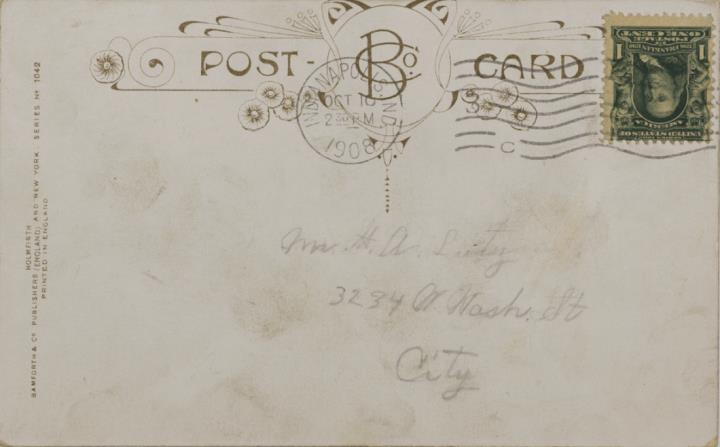 POST-CARD
B Co.
INDIANAPOLIS, IND.
OCT 10
2 30 PM
1908
C
POSTAGE
ONE CENT
1 1
FRANKLIN
UNITED STATES OF
AMERICA
Mr. H. A. Luty
3234 W. Wash. St
City
BAMFORTH & Co PUBLISHERS (ENGLAND) AND NEW YORK. SERIES No 1042
HOLMFIRTH
PRINTED IN ENGLAND